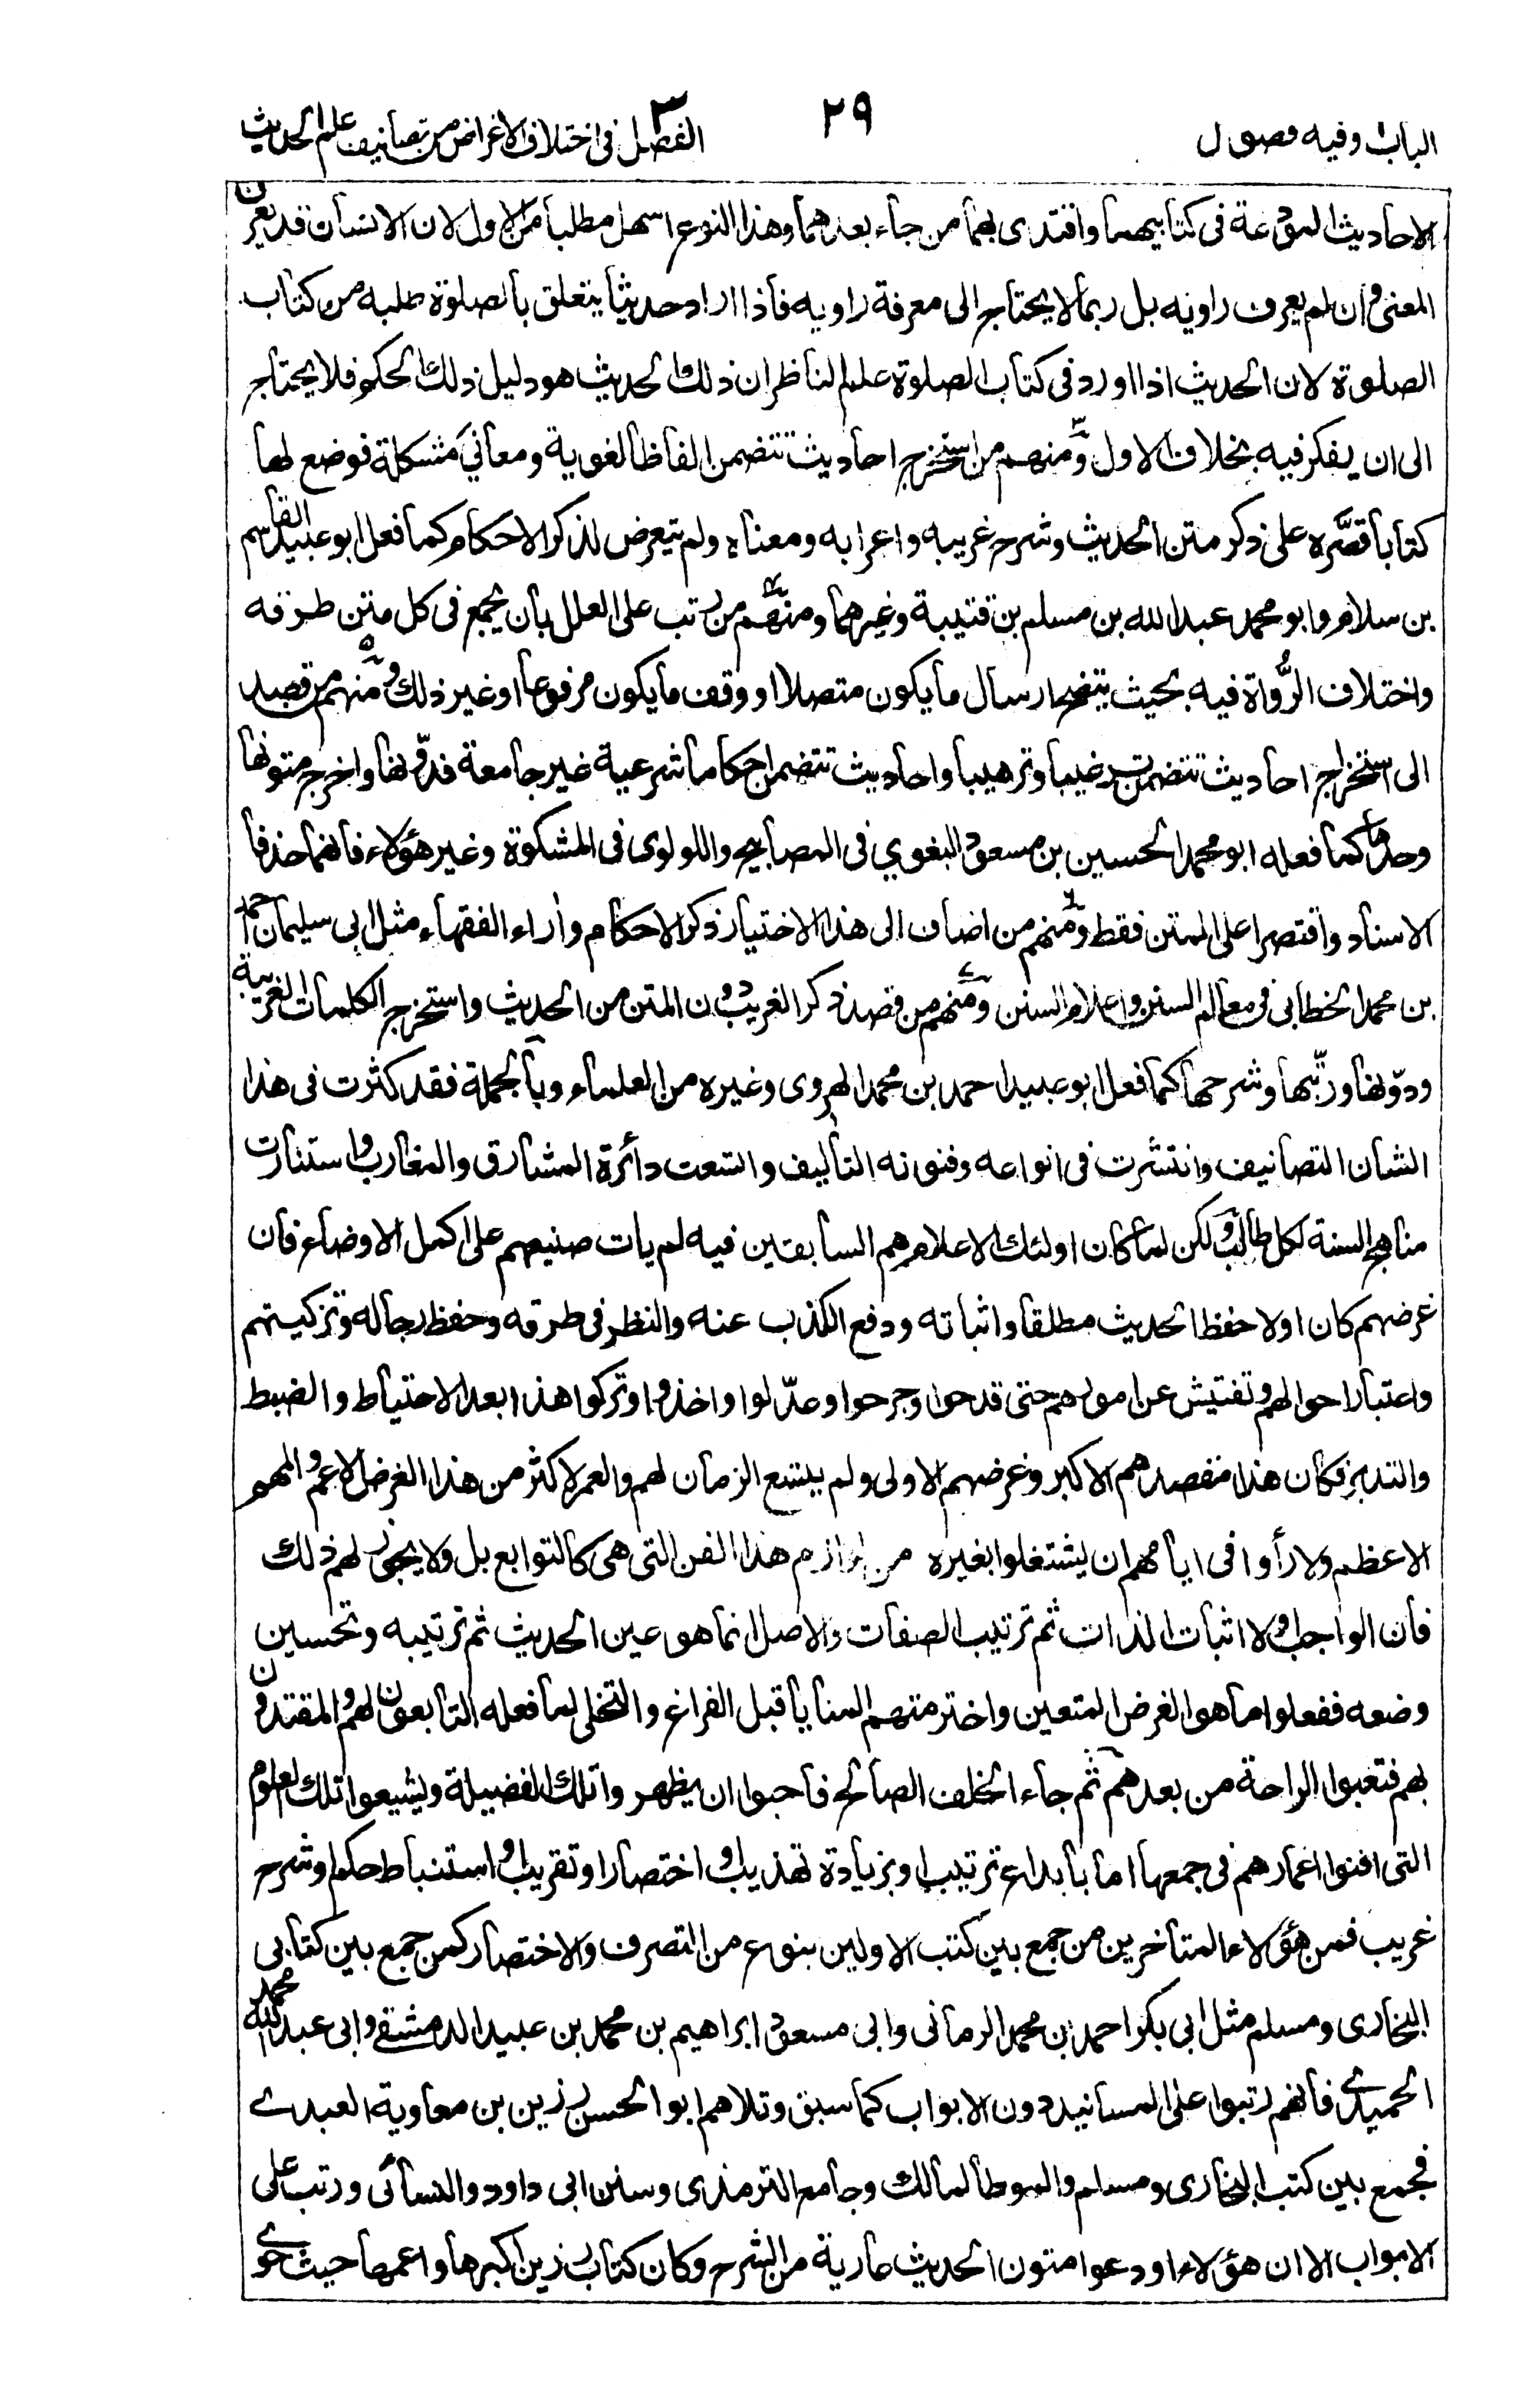 الباب ١ وفيه فصول
٢٩
الفصل ٣ فى اختلاف الاغراض من تصانيف علم الحديث
الاحاديث المودعة فى كتابيهما واقتدى بهما من جاء بعدهما وهذا النوع اسهل مطلبا من الاول لان الانسان قد يعرف
المعنى وان لم يعرف راويه بل ربما لا يحتاج الى معرفة راويه فاذا اراد حديثا يتعلق بالصلوة طلبه من كتاب
الصلوة لان الحديث اذا اورد فى كتاب الصلوة علم الناظر ان ذلك الحديث هو دليل ذلك الحكم فلا يحتاج
الى ان يفكر فيه بخلاف الاول ومنهم ٣ من استخرج احاديث تتضمن الفاظا لغوية ومعاني مشكلة فوضع لها
كتابا قصّره على ذكر متن الحديث وشرح غريبه واعرابه ومعناه ولم يتعرض لذكر الاحكام كما فعل ابو عبيد القاسم
بن سلام وابو محمد عبد الله بن مسلم بن قتيبة وغيرهما ومنهم ٤ من رتب على العلل بان يجمع فى كل متن طرقه
واختلاف الرُّواة فيه بحيث يتضح ارسال ما يكون متصلا او وقف ما يكون مرفوعا او غير ذلك ومنهم ٥ من قصد
الى استخراج احاديث تتضمن ترغيبا وترهيبا واحاديث تتضمن احكاما شرعية غير جامعة فدوّنها واخرج متونها
وحدها كما فعله ابو محمد الحسين بن مسعود البغوي فى المصابيح واللولوى فى المشكوة وغير هؤلاء فانهما حذفا
الاسناد واقتصرا على المتن فقط ومنهم ٦ من اضاف الى هذا الاختيار ذكر الاحكام وأراء الفقهاء مثل ابى سليمان احمد
بن محمد الخطابى فى معالم السنن واعلام السنن ومنهم ٧ من قصد ذكر الغريب دون المتن من الحديث واستخرج الكلمات الغريبة
ودوّنها ورتّبها وشرحها كما فعل ابو عبيد احمد بن محمد الهروى وغيره من العلماء وبالجملة فقد كثرت فى هذا
الشان التصانيف وانتشرت فى انواعه وفنونه التأليف واتسعت دائرة المشارق والمغارب واستنارت
مناهج السنة لكل طالب ولكن لما كان اولئك الاعلام هم السابقين فيه لم يات صنيعهم على اكمل الاوضاع فان
غرضهم كان اولا حفظ الحديث مطلقا واثباته ودفع الكذب عنه والنظر فى طرقه وحفظ رجاله وتزكيتهم
واعتبار احوالهم وتفتيش عن امورهم حتى قدحوا وجرحوا وعدّلوا واخذوا وتركوا هذا بعد الاحتياط والضبط
والتدبر فكان هذا مقصدهم الاكبر وغرضهم الاولى ولم يتسع الزمان لهم والعمر لاكثر من هذا الغرض الاعم والمهم
الاعظم ولا رأوا فى ايامهم ان يشتغلوا بغيره من لوازم هذا الفن التى هى كالتوابع بل ولا يجوز لهم ذلك
فان الواجب اولا اثبات الذات ثم ترتيب الصفات والاصل انما هو عين الحديث ثم ترتيبه وتحسين
وضعه ففعلوا ما هو الغرض المتعين واخترمتهم المنايا قبل الفراغ والتخلى لما فعله التابعون لهم والمقتدون
بهم فتعبوا الراحة من بعدهم ثم جاء الخلف الصالح فاحبوا ان يظهروا تلك الفضيلة ويشيعوا تلك العلوم
التى افنوا اعمارهم فى جمعها اما بابداع ترتيب او بزيادة تهذيب او اختصار او تقريب او استنباط حكم او شرح
غريب فمن هؤلاء المتاخرين من جمع بين كتب الاولين بنوع من التصرف والاختصار كمن جمع بين كتابى
البخارى ومسلم مثل ابى بكر احمد بن محمد الرمانى وابى مسعود ابراهيم بن محمد بن عبيد الدمشقے وابى عبد الله محمد
الحميدے فانهم رتبوا على المسانيد دون الابواب كما سبق وتلاهم ابو الحسن رزين بن معاوية العبدے
فجمع بين كتب البخارى ومسلم والموطأ لمالك وجامع الترمذى وسنن ابى داود والنسائى ورتب على
الابواب الا ان هؤلاء اودعوا متون الحديث عارية من الشرح وكان كتاب رزين اكبرها واعمها حيث حوے